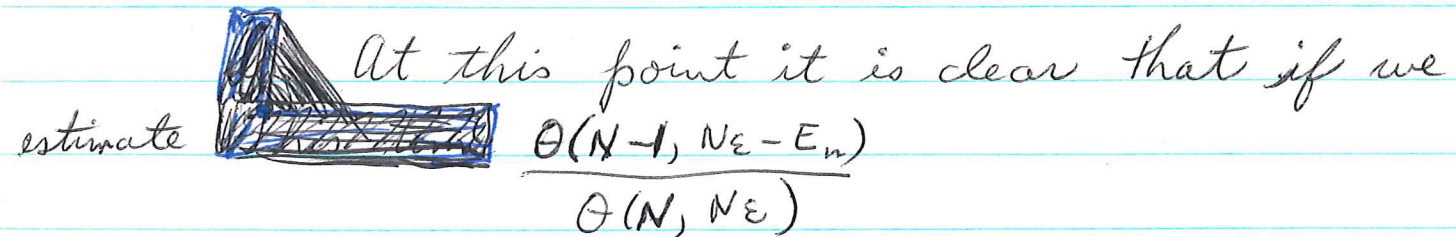 At this point it is clear that if we
estimate θ(N-1, Nε-Eₙ)
θ(N, Nε)